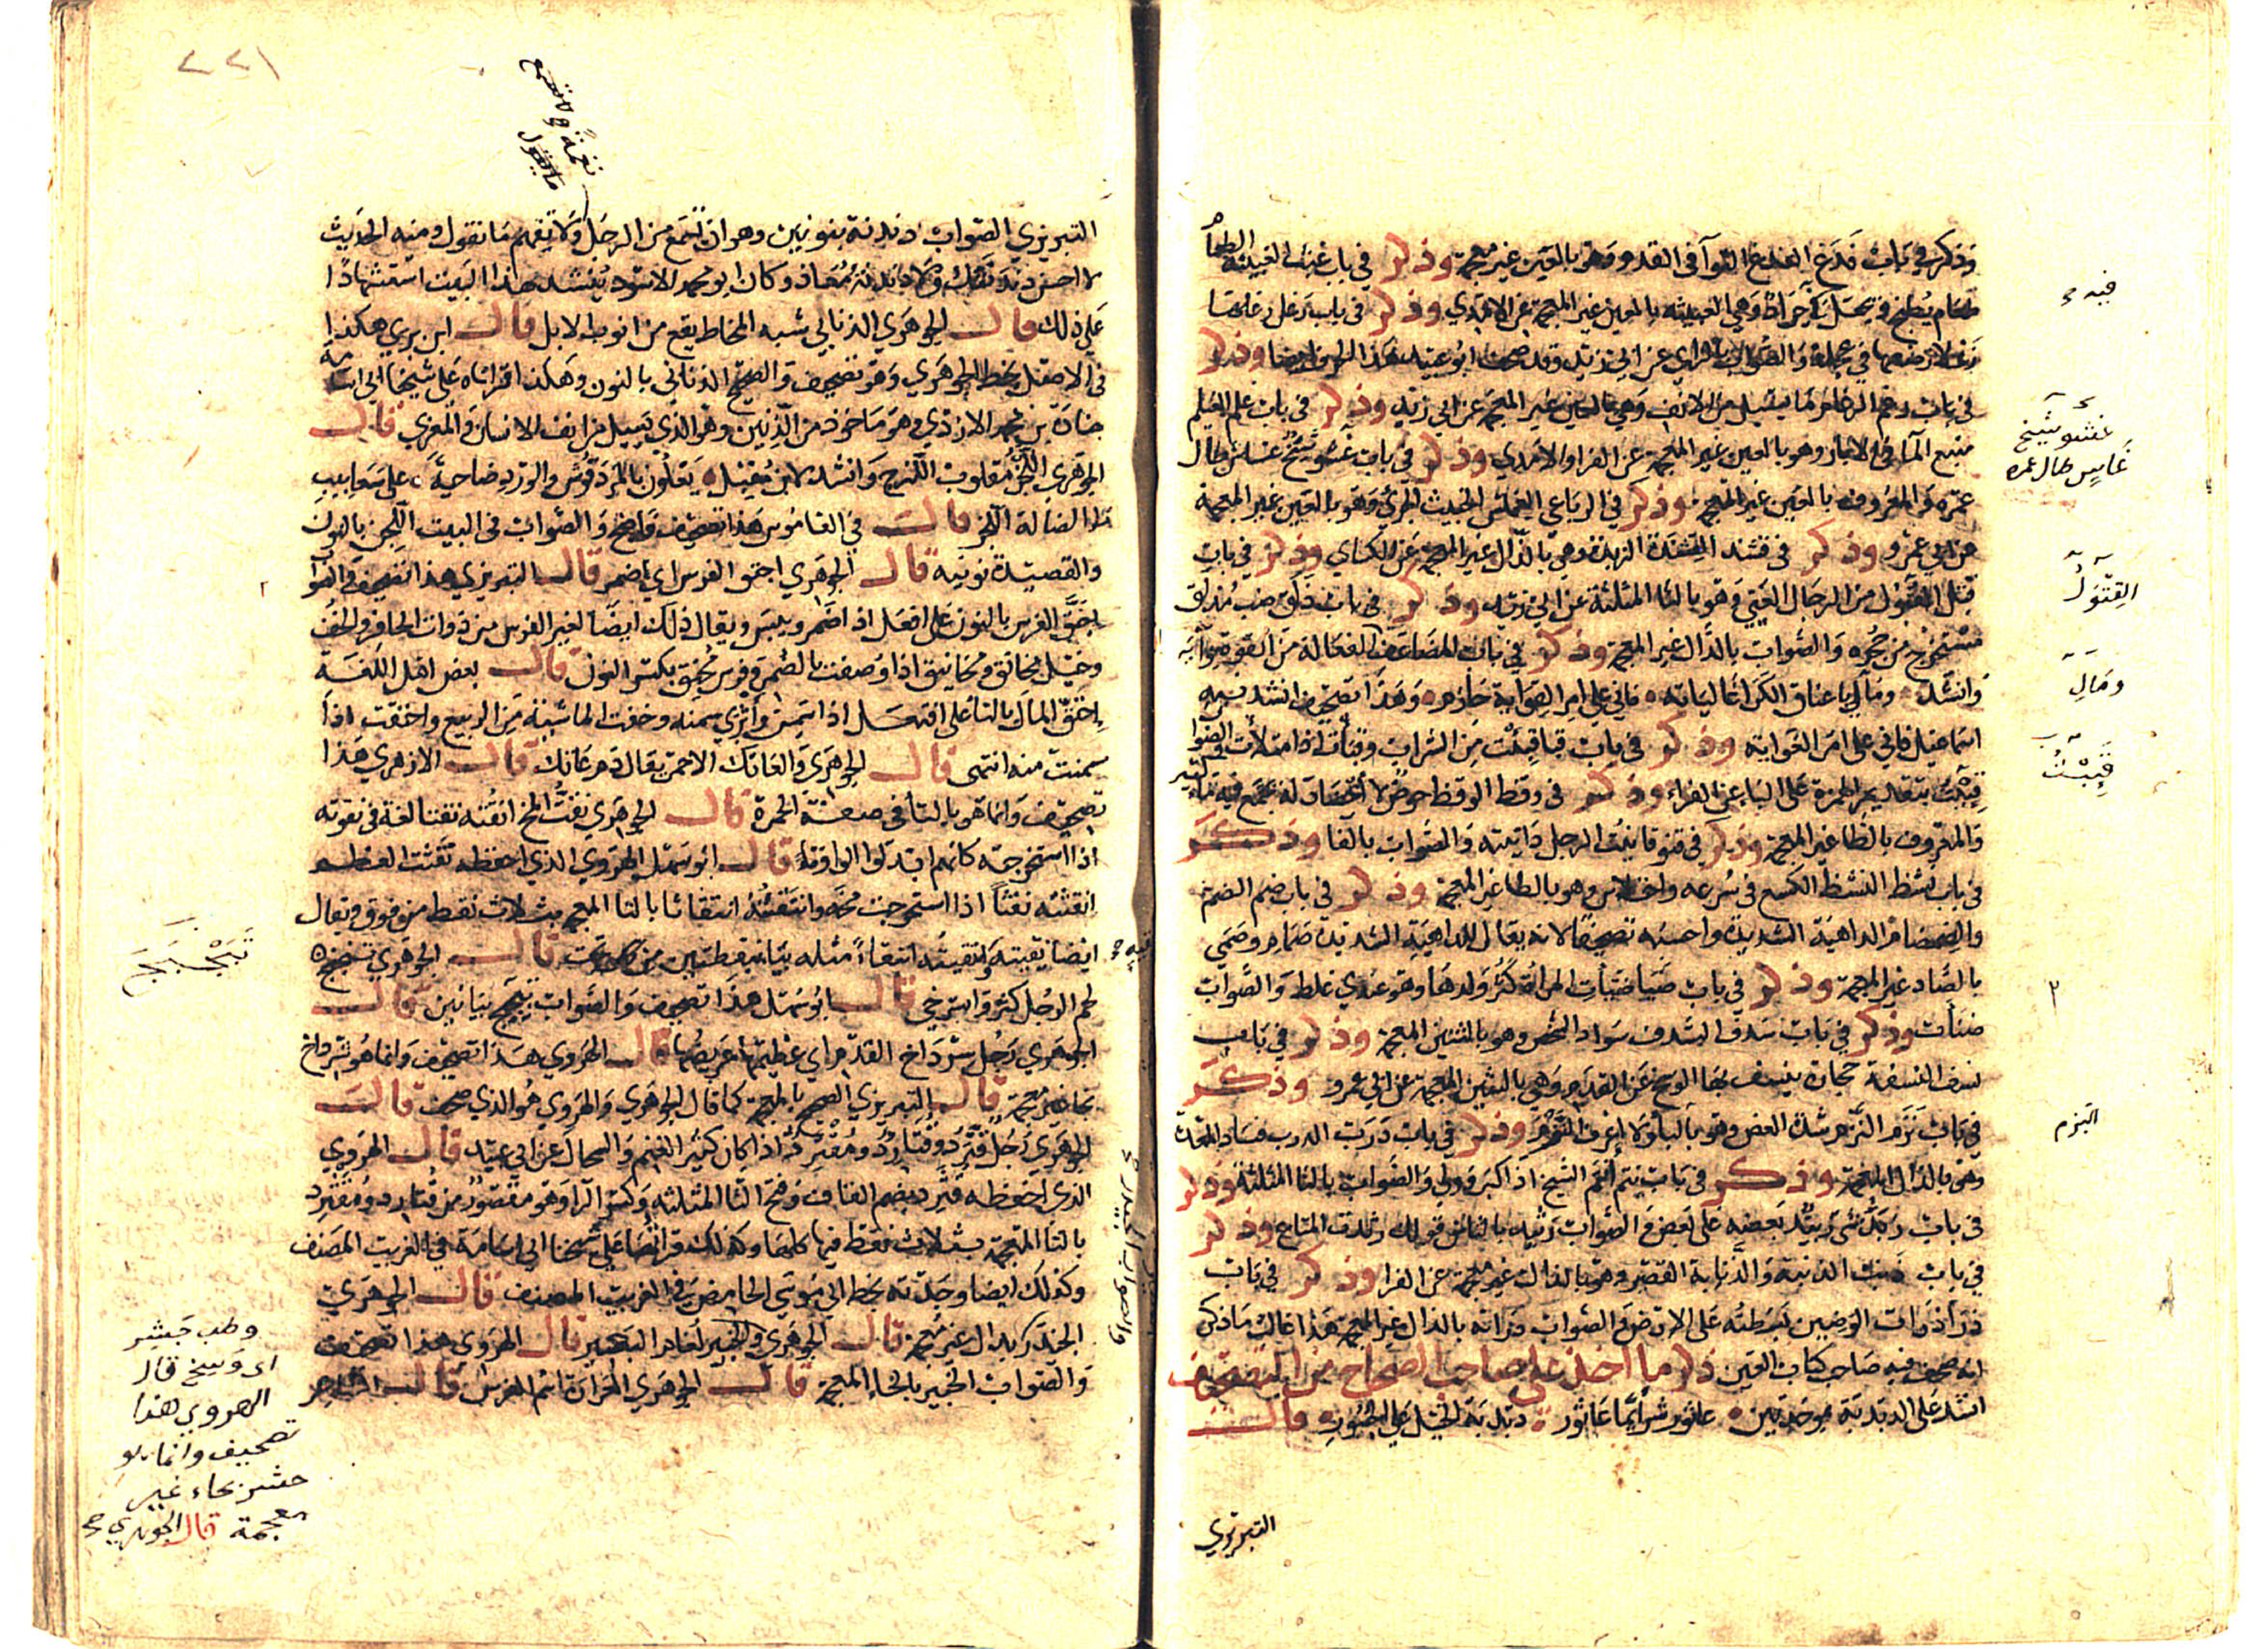 وذكر في باب فدغ الفدغ التوآ في القدم وهو بالعين غير معجمة وذكر في باب غبث الغبيثة الطعا
طعام يطبخ ويجعل فيه جراد وهي العبيثة بالعين غير المعجمة عن الاموي وذكر في باب رغل رغلها
رغلا رضعها في عجلة والصواب بالراي عن ابي زيد وقد صحف ابو عبيد هذا الحرف ايضا وذكر
في باب رغم الرغام ما يسيل من الانف وهي بالعين غير المعجمة عن ابي زيد وذكر في باب علم العيلم
منبع المآ في الابار وهو بالغين غير المعجمة عن الفرا والاموي وذكر في باب غسو شيخ غاس طال
عمره والمعروف بالعين غير المعجمة وذكر في الرباعي الغملس الخبيث الجرئ وهو بالعين غير المعجمة
عن ابي عمرو وذكر في قشد القشدة الزبدة وهي بالدال غير المعجمة عن الكساي وذكر في باب
قتل القتول من الرجال العيي وهو بالثا المثلثة عن ابي زيد وذكر في باب ذلق ضب مذلق
مستخرج من جحره والصواب بالدال غير المعجمة وذكر في باب المضاعف الفعالة من القوة قواية
وانشد ومال باعناق الكرا غالباته فاني على امر القواية حازم وهذا تصحيف انشد نيه
اسماعيل فاني على امر الغواية وذكر في باب قبا قبئت من الشراب وقبأت اذا امتلأت والصوا
قئبت بتقديم الهمزة على البا عن الفراء وذكر في وقط الوقظ حوض لا اعضاد له يجتمع فيه ماء كثير
والمعروف بالطا غير المعجمة وذكر في قنو قانيت الرجل دانيته والصواب بالفا وذكر
في باب نشظ النشظ الكسع في سرعه واختلاس وهو بالطا غير المعجمة وذكر في باب ضم الضمضم
والضمضام الداهية الشديدة واحسبه تصحيفا لانه يقال للداهية الشديدة صمام وصمي
بالصاد غير المعجمة وذكر في باب ضبا ضبات المراة كثر ولدها وهو عندي غلط والصواب
ضنأت وذكر في باب سدف السدف سواد الشخص وهو بالشين المعجمة وذكر في باب
نسف النسفة حجارة ينسف بها الوسخ عن القدم وهي بالشين المعجمة عن ابي عمرو وذكر
في باب نزم النزم شدة العض وهو بالبا ولا اعرف النزم وذكر في باب درب الدرب فساد المعدة
وهو بالذال المعجمة وذكر في باب نتم انتم الشيخ اذا كبر وولى والصواب بالثا المثلثة وذكر
في باب ربد شى ربيد بعضه على بعض والصواب رثيد بالثا من قولك رثدت المتاع وذكر
في باب ذنب الذنبة والذنابة القصر وهو بالدال غير معجمة عن الفرا وذكر في باب
ذرأ ذرات الوضين بسطته على الارض والصواب درأته بالدال غير المعجمة هذا غالب ما ذكر
انه صحف فيه صاحب كتاب العين ذكر ما اخذ على صاحب الصحاح من التصحيف
انشد على الدبدبة موحدتين عاثور شر ايما عاثور دبدبة الخيل على الجسور قال
التبريزي
فيه صح
غسو شيخ
غاسٍ طال عمره
القتول
ومال
قبئت
٣
البزم
٢٢١
نغمة ولا تفهم
ما يقول
التبريزي الصواب دندنة بنونين وهو ان تسمع من الرجل نغمة ولا تفهم ما تقول ومنه الحديث
لا احسن دندنتك ولا دندنة معاذ وكان ابو محمد الاسود ينشد هذا البيت استشهادا
على ذلك قال الجوهري الذنابي شبه المخاط يقع من انوف الابل قال ابن بري هكذا
في الاصل بخط الجوهري وهو تصحيف والصحيح الذناني بالنون وهكذا اقراناه على شيخنا ابي اسامه
جنادة بن محمد الازدي وهو ماخوذ من الذنين وهو الذي يسيل من انف الانسان والمعزى قال
الجوهري اللجز مقلوب اللزج وانشد لابن مقبل يعلون بالمردقوش والورد ضاحية على سعابيب
ما الضالة اللجز قال في القاموس هذا تصحيف واضح والصواب في البيت اللجن بالنون
والقصيدة نونية قال الجوهري احنق الفرس اي ضمر قال التبريزي هذا تصحيف والصوا
احنق الفرس بالنون على افعل اذا ضمر ويبس ويقال ذلك ايضا لغير الفرس من ذوات الحافر والخف
وخيل محانق ومحانيق اذا وصفت بالضمر وفرس محنق بكسر النون قال بعض اهل اللغة
احتق المال بالتا على افتعل اذا سمن واثرى سمنه وحقت الماشية من الربيع واحتقت اذا
سمنت منه انتهى قال الجوهري والعانك الاحمر يقال دم عانك قال الازهري هذا
تصحيف وانما هو بالتا في صفة الحمرة قال الجوهري نقت المخ انقته نقتا لغة في نقوته
اذا استخرجته كانهم ابدلوا الواو تا قال ابو سهل الهروي الذي احفظه نقثت العظم
انقثه نقثا اذا استخرجت مخه وانتقثته انتقاثا بالثا المعجمة بثلاث نقط من فوق ويقال
ايضا نقيته وانتقيته انتقاءً مثله بيا بنقطتين من تحت قال الجوهري تبخبخ
لحم الرجل كثر واسترخى قال ابو سهل هذا تصحيف والصواب تبجبج بجيمين قال
الجوهري رجل شرداخ القدم اي عظيمها عريضها قال الهروي هذا تصحيف وانما هو شرداح
بحا غير معجمة قال التبريزي الصحيح بالمعجمة كما قال الجوهري والهروي هو الذي صحف قال
الجوهري رجل قترد وقتارد ومقترد اذا كان كثير الغنم والسخال عن ابي عبيد قال الهروي
الذي احفظه قثرد بضم القاف وفتح الثا المثلثة وكسر الرا وهو مقصور من قثارد ومقثرد
بالثا المعجمة بثلاث نقط فيها كلها وكذلك قراتها على شيخنا ابي اسامة في الغريب المصنف
وكذلك ايضا وجدته بخط ابي موسى الحامض في الغريب المصنف قال الجوهري
قال الجوهري والجبير لغام البعير قال الهروي هذا تصحيف
والصواب الخبير بالخاء المعجمة قال الجوهري العرارة اسم الفرس قال
تبجبج
وطب جشر
اى وسخ قال
الهروي هذا
تصحيف وانما هو
حشر بحاء غير
معجمة قال الجوهري صح